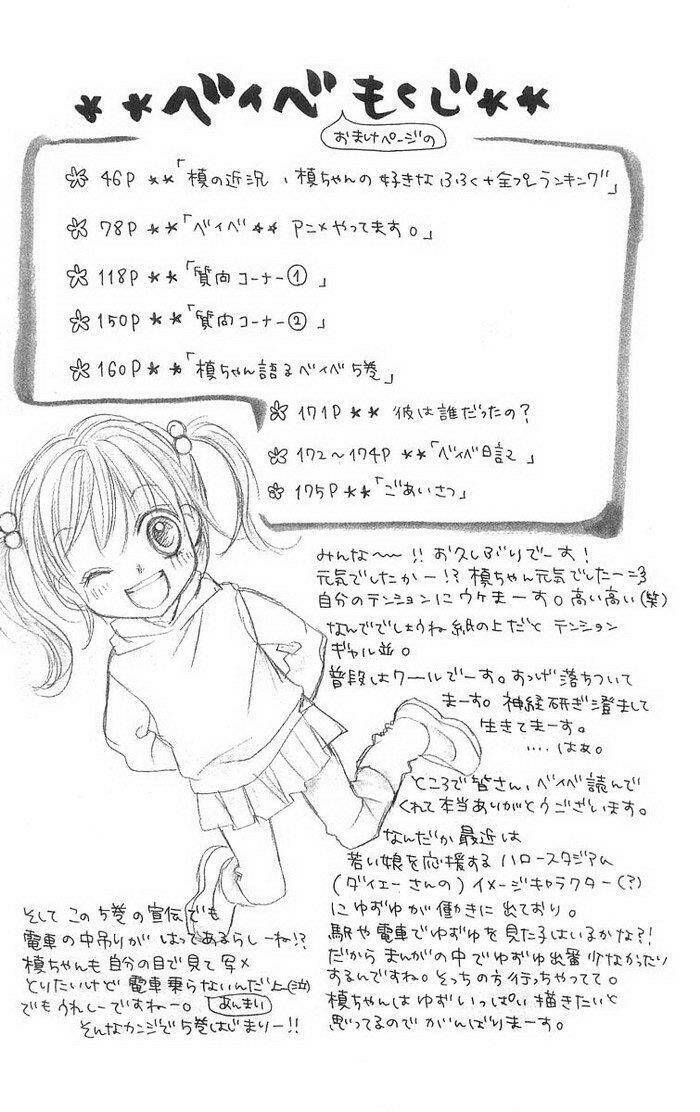 **ベイベもくじ**
おまけページの
46P **「槙の近況、槙ちゃんの好きなふく+全プレランキング」
78P **「ベイベ** アニメやってます。」
118P **「質問コーナー①」
150P **「質問コーナー②」
160P **「槙ちゃん語るベイベ5巻」
171P ** 彼は誰だったの?
172〜174P **「ベイベ日記」
175P **「ごあいさつ」
みんな〜〜!!お久しぶりでーす!
元気でしたかー!?槙ちゃん元気でしたー
自分のテンションにウケまーす。高い高い(笑)
なんででしょうね紙の上だと テンション
ギャル並。
普段はクールでーす。すっげ落ちついて
まーす。神経研ぎ澄まして
生きてまーす。
‥‥はぁ。
ところで皆さん、ベイベ読んで
くれて本当ありがとうございます。
なんだか最近は
若い娘を応援する ハロースタジアム
(ダイエーさんの)イメージキャラクター(?)
にゆずゆが働きに出ており。
駅や電車でゆずゆを見た子はいるかな?!
だからまんがの中でゆずゆ出番少なかったり
するんですね。そっちの方行っちゃってて。
槙ちゃんはゆずいっぱい描きたいと
思ってるのでがんばりまーす。
そしてこの5巻の宣伝でも
電車の中吊りがはってあるらしーね!?
槙ちゃんも自分の目で見て写メ
とりたいけど電車乗らないんだ上(泣)
でもうれしーですねー。あんまい
そんなカンジで5巻はじまりー!!